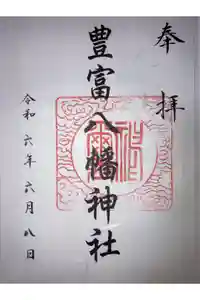 奉拝
豊富八幡神社
令和六年六月八日